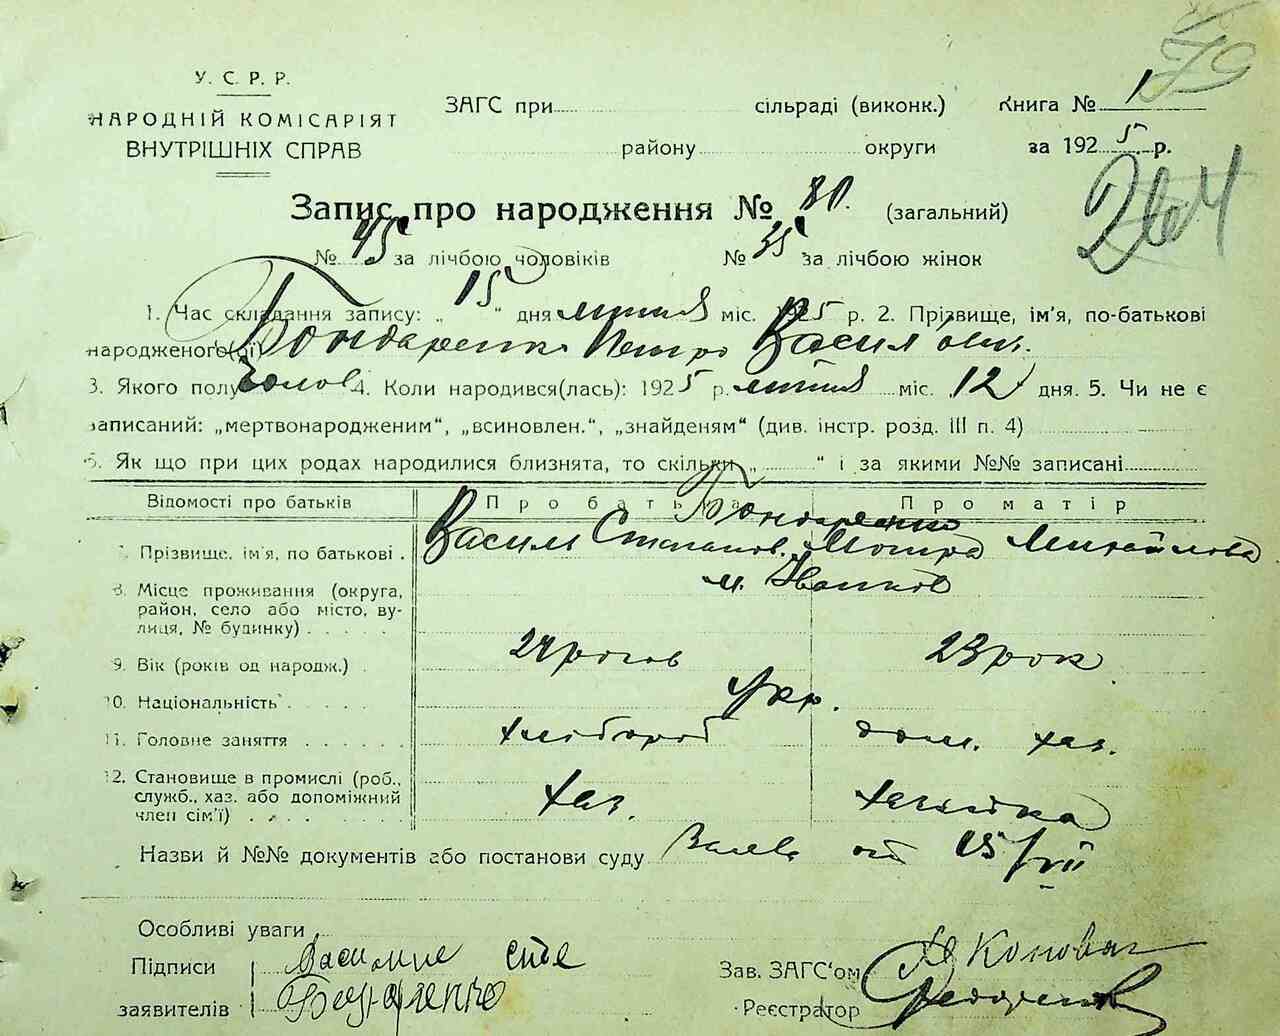 79
У. С. Р. Р.
НАРОДНІЙ КОМІСАРІЯТ
ВНУТРІШНІХ СПРАВ
ЗАГС при сільраді (виконк.) Книга № 1
району округи за 1925 р.
264
Запис про народження № 80. (загальний)
№ 45 за лічбою чоловіків № 35 за лічбою жінок
1. Час складання запису: „ 15 “ дня липня міс. 1925 р. 2. Прізвище, ім'я, по-батькові
народженого(ої) Бондаренко Петро Васильович.
3. Якого полу чолов 4. Коли народився(лась): 1925 р. липня міс. 12 дня. 5. Чи не є
записаний: „мертвонародженим“, „всиновлен.“, „знайденям“ (див. інстр. розд. III п. 4)
6. Як що при цих родах народилися близнята, то скільки „ “ і за якими №№ записані
Відомості про батьків Про батька Про матір
Бондаренко
7. Прізвище, ім'я, по батькові . Василь Степанов. Мотра Михайлова
8. Місце проживання (округа, м. Іванков
район, село або місто, ву-
лиця, № будинку) . . . . .
9. Вік (років од народж.) . 24 років 23 рок
10. Національність . . . . . Укр.
11. Головне заняття . . . . . . хлібороб дом. хаз.
12. Становище в промислі (роб.,
служб., хаз. або допоміжний хаз. хазяйка
член сім'ї) . . . . . . .
Назви й №№ документів або постанови суду Заява от 15/VII
Особливі уваги
Підписи
заявителів Бондаренко
Зав. ЗАГС'ом
Реєстратор